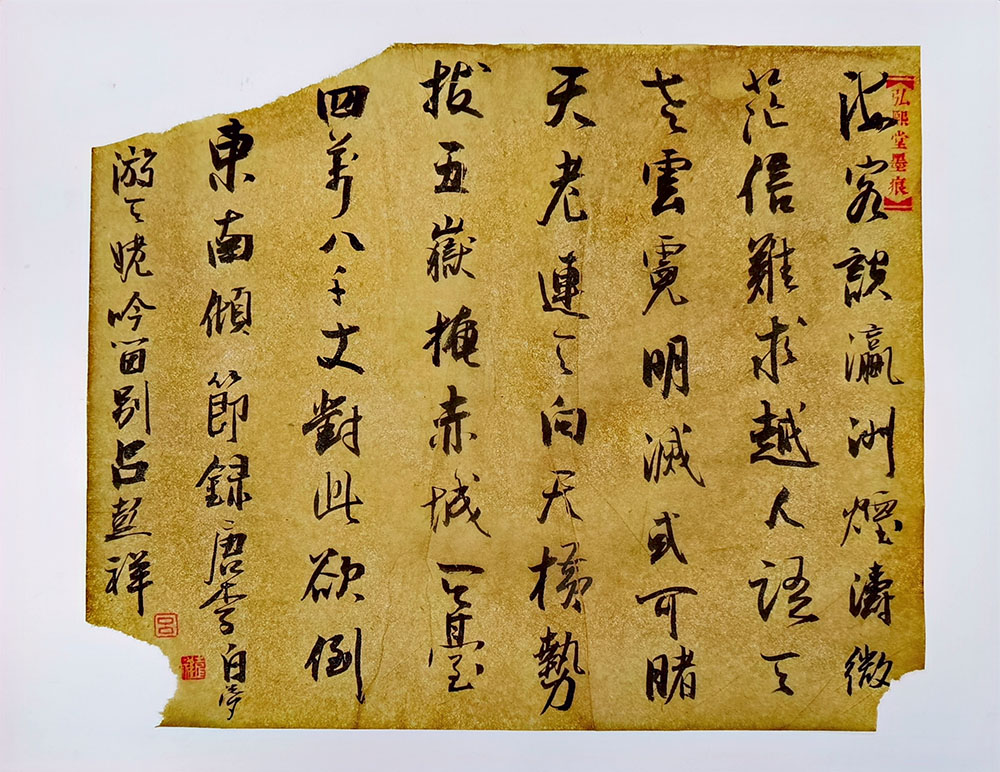 【弘熙堂墨痕】
海客談瀛洲煙濤微
茫信難求越人語天
老雲霓明滅或可睹
天老連天向天橫勢
拔五嶽掩赤城天臺
四萬八千丈對此欲倒
東南傾 節錄唐李白夢
游天姥吟留別吕彭祥
吕